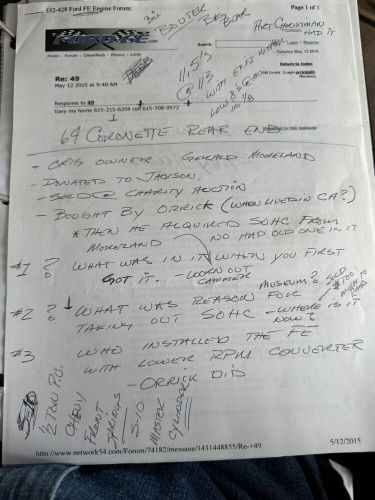 332-428 Ford FE Engine Forum:
Page 1 of 1
Bill
BOUTER
BIG BOAR
PAT CHRISTMAN
HAD IT
Search
Login · Register
Home · Forum · Classifieds · Photos · Links
Tuesday May, 12 2015
11.5/3
@ 113
WITH EXTZ
LOW 8s @ 80
IN 1/8
Return to Index
Re: 49
May 12 2015 at 9:40 AM
Response to 49
Gary my home 615-215-6304 cell 615-708-9572
64 CORONETTE REAR END
- ORIG OWNER GERALD MORELAND
- DONATED TO JACKSON.
- SOLD @ CHARITY AUCTION
- BOUGHT BY ORRICK (WHEN LIVED IN CA?)
* THEN HE ACQUIRED SOHC FROM
MORELAND
NO HAD OLD ONE IN IT
#1 ? WHAT WAS IN IT WHEN YOU FIRST
GOT IT. - WORN OUT
CAMMER
MUSEUM?
#2 ? WHAT WAS REASON FOR
TAKING OUT SOHC - WHERE IS IT
NOW?
#3 WHO INSTALLED THE FE
WITH LOWER RPM CONVERTER
- ORRICK DID
S10
1/2 TON P.U.
CHEVY
FRONT
SPRINGS
S10
MASTER
CYLINDER
http://www.network54.com/Forum/74182/message/1431448855/Re-+49
5/12/2015